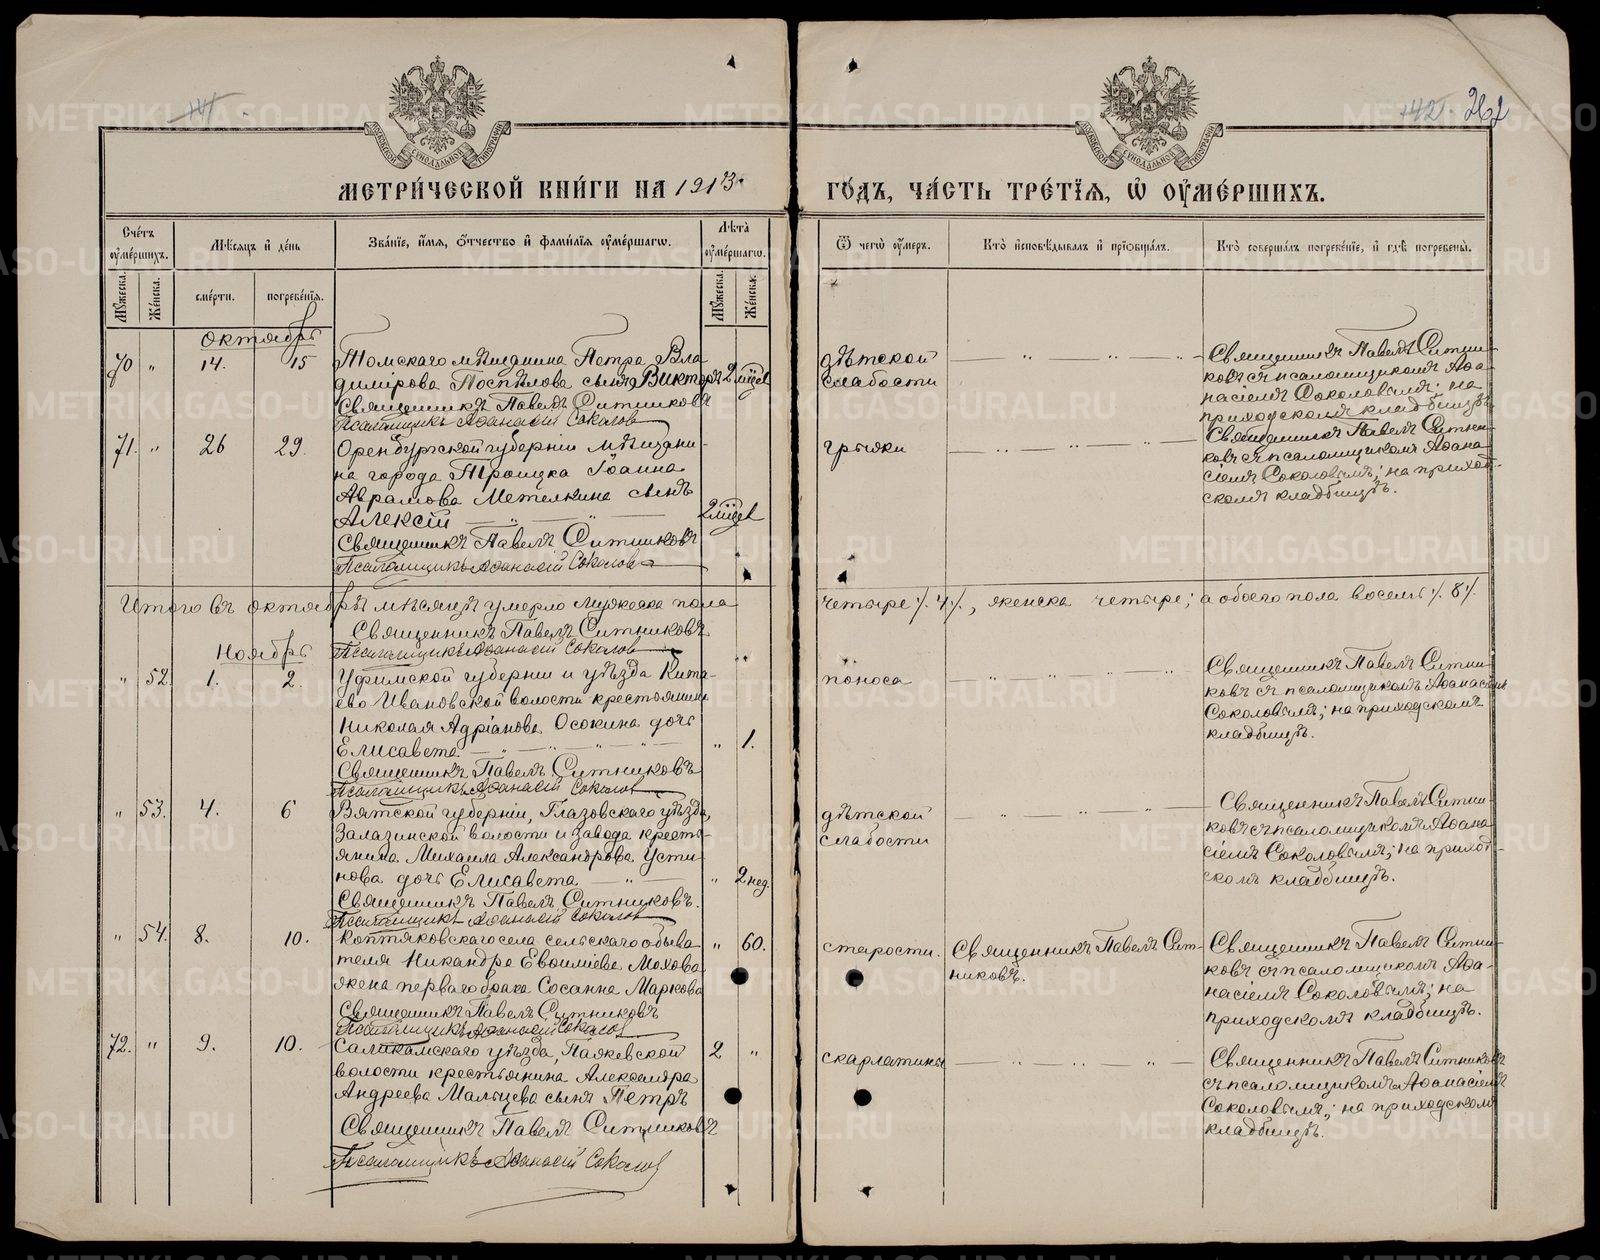 141
142. 262
МЕТРИ́ЧЕСКОЙ КНИ́ГИ НА 1913
ГО́ДЪ, ЧА́СТЬ ТРЕ́ТЇЯ, Ѡ ОУМЕ́РШИХЪ.
Сче́тъ оуме́ршихъ.
Мѣсяцъ и де́нь
Зва́нїе, и́мя, о́тчество и фами́лїя оуме́ршагѡ.
Лѣта̀ оуме́ршагѡ.
Ѿ чегѡ̀ оу́меръ.
Кто̀ и҆сповѣ́дывалъ и҆ прїѡбща́лъ.
Кто̀ соверша́лъ погребе́нїе, и҆ гдѣ̀ погребены̀.
Мꙋжеска.
Же́нска.
сме́рти.
погребе́нїя.
Мꙋжеска.
Же́нска.
Октябрь
70 " 14. 15 Томскаго мѣщанина Петра Вла
димірова Поспѣлова сынъ Викторъ 2 мѣсяц
Священникъ Павелъ Ситниковъ
Псаломщикъ Аѳанасій Соколов
дѣтской
слабости
Священникъ Павелъ Ситни-
ковъ съ псаломщикомъ Аѳа-
насіемъ Соколовымъ; на
приходскомъ кладбищѣ.
71. " 26 29. Оренбургской губерніи мѣщани-
на города Троицка Іоанна
Аврамова Метелкина сынъ
Алексій 2 мѣсяц
Священникъ Павелъ Ситниковъ
Псаломщикъ Аѳанасій Соколов
грыжи
Священникъ Павелъ Ситни-
ковъ съ псаломщикомъ Аѳана-
сіемъ Соколовымъ; на приход-
скомъ кладбищѣ.
Итого въ октябрѣ мѣсяцѣ умерло мужеска пола
четыре ./. 4 ./., женска четыре; а обоего пола восемь ./. 8 ./.
Священникъ Павелъ Ситниковъ
Псаломщикъ Аѳанасій Соколов
Ноябрь
" 52. 1. 2. Уфимской губерніи и уѣзда Кита-
ево Ивановской волости крестьянина
Николая Адріанова Осокина дочь
Елисавета " 1.
Священникъ Павелъ Ситниковъ
Псаломщикъ Аѳанасій Соколов
поноса
Священникъ Павелъ Ситни-
ковъ съ псаломщикомъ Аѳанасіемъ
Соколовымъ; на приходскомъ
кладбищѣ.
" 53. 4. 6 Вятской губерніи, Глазовскаго уѣзда,
Залазинской волости и завода кресть-
янина Михаила Александрова Усти-
нова дочь Елисавета " 2 нед.
Священникъ Павелъ Ситниковъ.
Псаломщикъ Аѳанасій Соколов
дѣтской
слабости
Священникъ Павелъ Ситни-
ковъ съ псаломщикомъ Аѳана
сіемъ Соколовымъ; на приход-
скомъ кладбищѣ.
" 54. 8. 10. Коптяковскаго села сельскаго обыва- " 60.
теля Никандра Евѳиміева Мохова
жена перваго брака Сосанна Маркова
Священникъ Павелъ Ситниковъ
Псаломщикъ Аѳанасій Соколов
старости.
Священникъ Павелъ Сит-
никовъ.
Священникъ Павелъ Ситни-
ковъ съ псаломщикомъ Аѳа-
насіемъ Соколовымъ; на
приходскомъ кладбищѣ.
72. " 9. 10. Саликамскаго уѣзда, 2 "
волости крестьянина Александра
Андреева Мальцева сынъ Петръ
Священникъ Павелъ Ситниковъ
Псаломщикъ Аѳанасій Соколов
скарлатины
Священникъ Павелъ Ситниковъ
съ псаломщикомъ Аѳанасіемъ
Соколовымъ; на приходскомъ
кладбищѣ.
METRIKI.GASO-URAL.RU